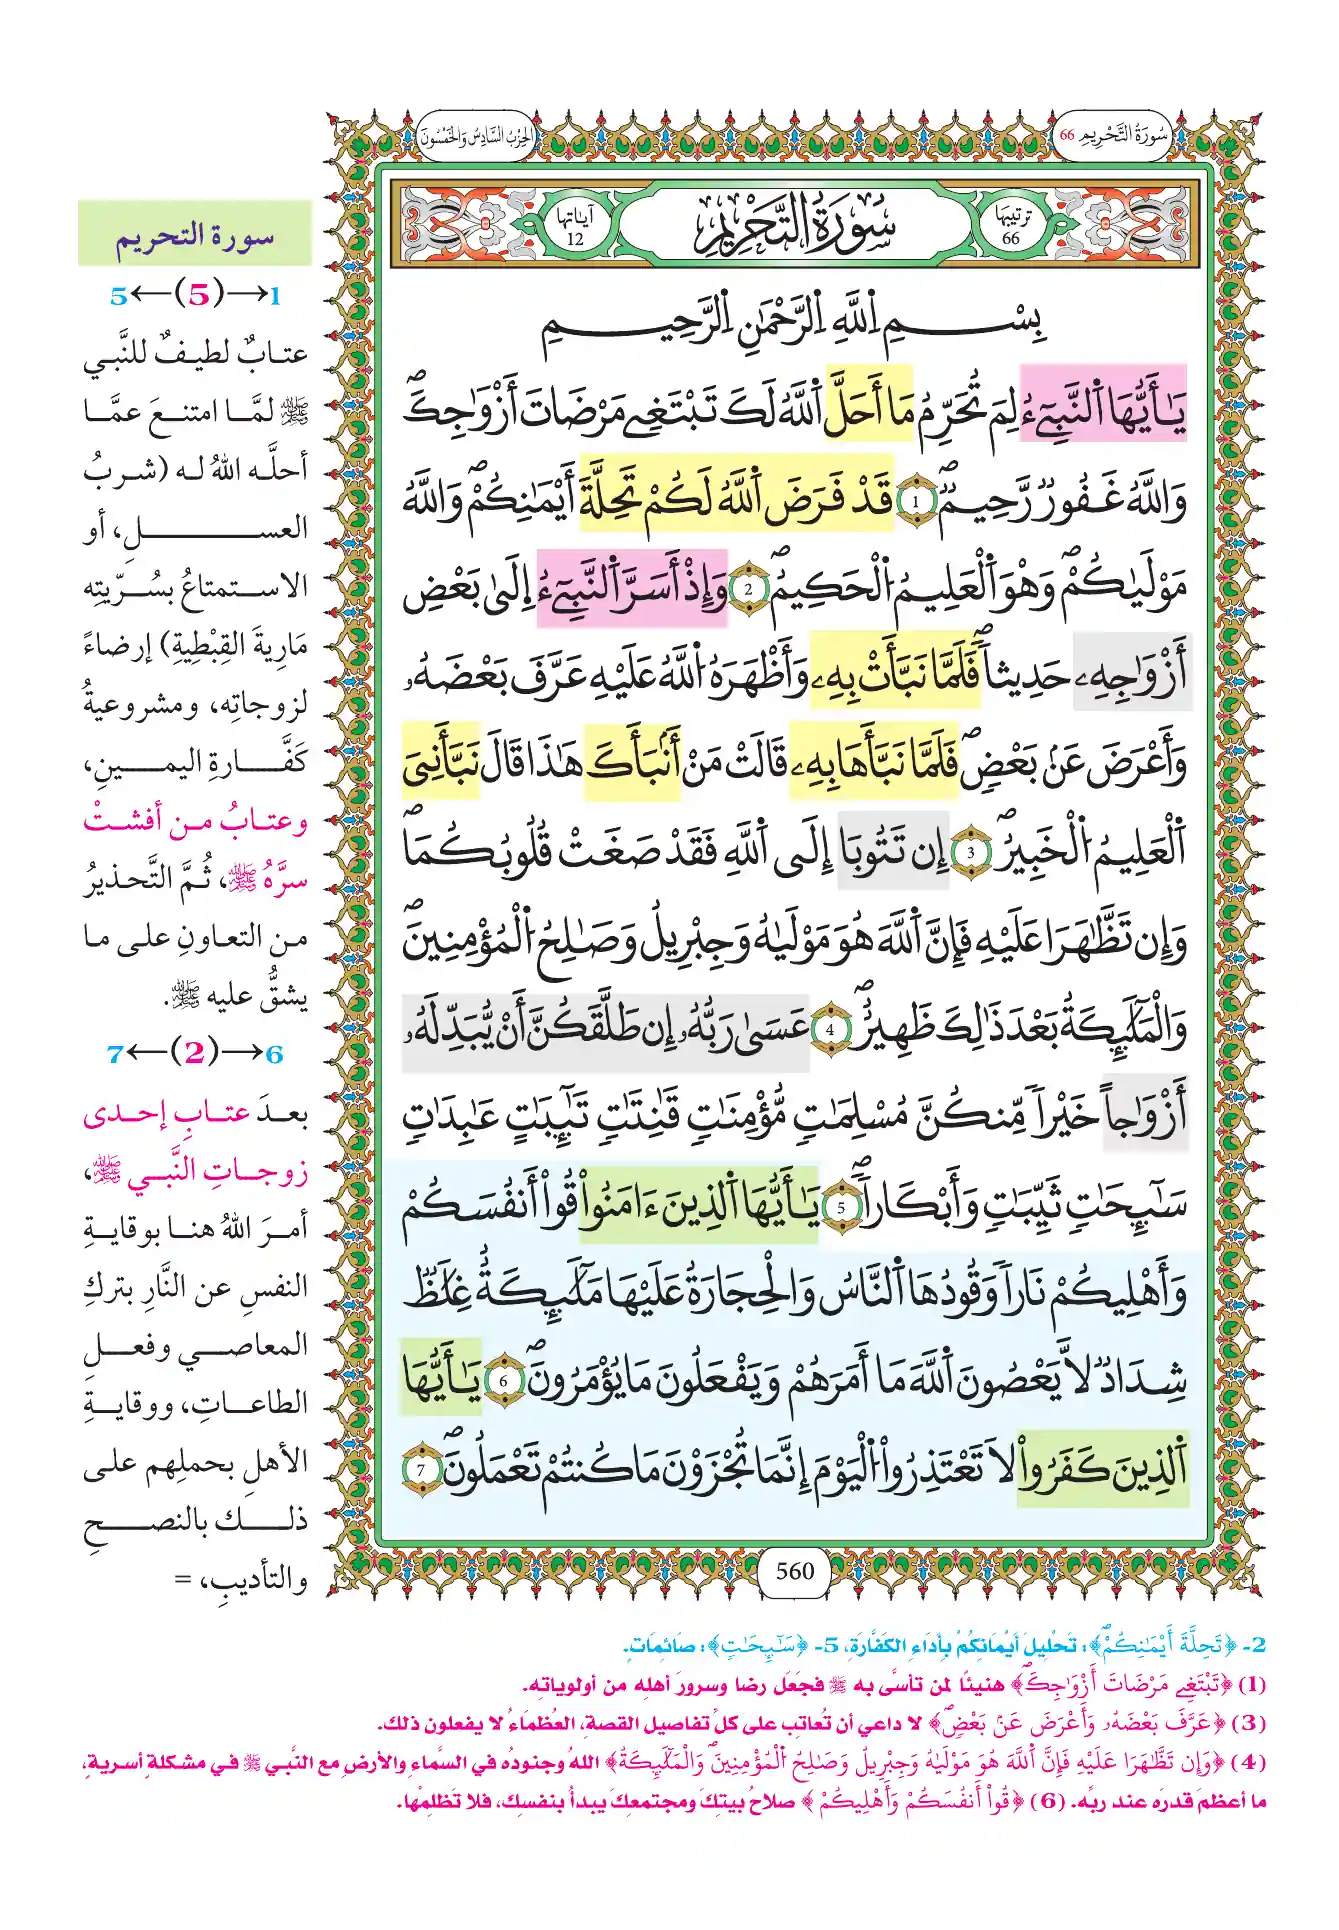 سُورَةُ التَّحْرِيمِ 66
الحِزْبُ السَّادِسُ وَالخَمْسُونَ
ترتيبها 66
سُورَةُ التَّحْرِيمِ
آياتها 12
بِسْمِ اِ۬للَّهِ اِ۬لرَّحْمَٰنِ اِ۬لرَّحِيمِ
يَٰأَيُّهَا اَ۬لنَّبِيٓءُ لِمَ تُحَرِّمُ مَا أَحَلَّ اَ۬للَّهُ لَكَ تَبْتَغِي مَرْضَاتَ أَزْوَٰجِكَۖ
وَاللَّهُ غَفُورٞ رَّحِيمٞۖ 1 قَدْ فَرَضَ اَ۬للَّهُ لَكُمْ تَحِلَّةَ أَيْمَٰنِكُمْۖ وَاللَّهُ
مَوْلَيٰكُمْۖ وَهُوَ اَ۬لْعَلِيمُ اُ۬لْحَكِيمُۖ 2 وَإِذْ أَسَرَّ اَ۬لنَّبِيٓءُ إِلَىٰ بَعْضِ
أَزْوَٰجِهِۦ حَدِيثاٗۖ فَلَمَّا نَبَّأَتْ بِهِۦ وَأَظْهَرَهُ اُ۬للَّهُ عَلَيْهِ عَرَّفَ بَعْضَهُۥ
وَأَعْرَضَ عَنۢ بَعْضٖۖ فَلَمَّا نَبَّأَهَا بِهِۦ قَالَتْ مَنْ أَنۢبَأَكَ هَٰذَا قَالَ نَبَّأَنِيَ
اَ۬لْعَلِيمُ اُ۬لْخَبِيرُۖ 3 إِن تَتُوبَا إِلَى اَ۬للَّهِ فَقَدْ صَغَتْ قُلُوبُكُمَاۖ
وَإِن تَظَّٰهَرَا عَلَيْهِ فَإِنَّ اَ۬للَّهَ هُوَ مَوْلَيٰهُ وَجِبْرِيلُ وَصَٰلِحُ اُ۬لْمُؤْمِنِينَۖ
وَالْمَلَٰٓئِكَةُ بَعْدَ ذَٰلِكَ ظَهِيرٌۖ 4 عَسَىٰ رَبُّهُۥ إِن طَلَّقَكُنَّ أَنْ يُّبَدِّلَهُۥ
أَزْوَٰجاً خَيْراٗ مِّنكُنَّ مُسْلِمَٰتٖ مُّؤْمِنَٰتٖ قَٰنِتَٰتٖ تَٰٓئِبَٰتٍ عَٰبِدَٰتٖ
سَٰٓئِحَٰتٖ ثَيِّبَٰتٖ وَأَبْكَاراٗۖ 5 يَٰأَيُّهَا اَ۬لذِينَ ءَامَنُواْ قُواْ أَنفُسَكُمْ
وَأَهْلِيكُمْ نَاراٗ وَقُودُهَا اَ۬لنَّاسُ وَالْحِجَارَةُ عَلَيْهَا مَلَٰٓئِكَةٌ غِلَٰظٞ
شِدَادٞ لَّا يَعْصُونَ اَ۬للَّهَ مَا أَمَرَهُمْ وَيَفْعَلُونَ مَا يُؤْمَرُونَۖ 6 يَٰأَيُّهَا
اَ۬لذِينَ كَفَرُواْ لَا تَعْتَذِرُواْ اُ۬لْيَوْمَ إِنَّمَا تُجْزَوْنَ مَا كُنتُمْ تَعْمَلُونَۖ 7
560
سورة التحريم
1→(5)←5
عتابٌ لطيفٌ للنَّبي
ﷺ لمَّا امتنعَ عمَّا
أحلَّه اللهُ له (شربُ
العسلِ، أو
الاستمتاعُ بسُرّيتِه
مَارِيةَ القِبْطِيةِ) إرضاءً
لزوجاتِه، ومشروعيةُ
كَفَّارةِ اليمينِ،
وعتابُ من أفشتْ
سرَّهُ ﷺ، ثُمَّ التَّحذيرُ
من التعاونِ على ما
يشقُّ عليه ﷺ.
6→(2)←7
بعدَ عتابِ إحدى
زوجاتِ النَّبي ﷺ،
أمرَ اللهُ هنا بوقايةِ
النفسِ عن النَّارِ بتركِ
المعاصي وفعلِ
الطاعاتِ، ووقايةِ
الأهلِ بحملِهم على
ذلك بالنصحِ
والتأديبِ، =
2- ﴿تَحِلَّةَ أَيْمَٰنِكُمْۖ﴾: تَحْلِيلَ أَيْمَانِكُمْ بِأَدَاءِ الكَفَّارَةِ، 5- ﴿سَٰٓئِحَٰتٖ﴾: صَائِمَاتٍ.
(1) ﴿تَبْتَغِي مَرْضَاتَ أَزْوَٰجِكَۖ﴾ هنيئًا لمن تأسَّى به ﷺ فجَعَل رضا وسرورَ أهلِه من أولوياتِه.
(3) ﴿عَرَّفَ بَعْضَهُۥ وَأَعْرَضَ عَنۢ بَعْضٖۖ﴾ لا داعي أن تُعاتب على كلِّ تفاصيل القصة، العُظمَاءُ لا يفعلون ذلك.
(4) ﴿وَإِن تَظَّٰهَرَا عَلَيْهِ فَإِنَّ اَ۬للَّهَ هُوَ مَوْلَيٰهُ وَجِبْرِيلُ وَصَٰلِحُ اُ۬لْمُؤْمِنِينَۖ وَالْمَلَٰٓئِكَةُ﴾ اللهُ وجنودُه في السَّماءِ والأرضِ مع النَّبي ﷺ في مشكلةٍ أسريةٍ،
ما أعظمَ قدرَه عند ربِّه. (6) ﴿قُواْ أَنفُسَكُمْ وَأَهْلِيكُمْ﴾ صلاحُ بيتِكَ ومجتمعِكَ يبدأُ بنفسِك، فلا تَظلِمْها.